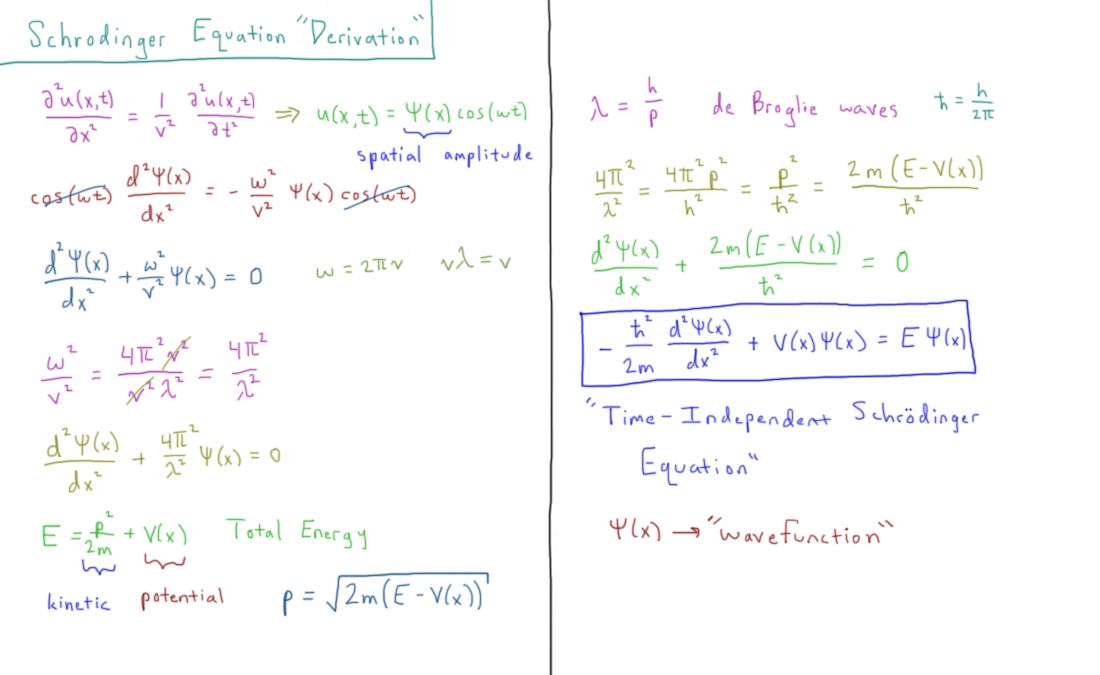 Schrodinger Equation "Derivation"
∂²u(x,t)/∂x² = 1/v² ∂²u(x,t)/∂t² ⇒ u(x,t) = Ψ(x) cos(ωt)
spatial amplitude
cos(ωt) d²Ψ(x)/dx² = - ω²/v² Ψ(x) cos(ωt)
d²Ψ(x)/dx² + ω²/v² Ψ(x) = 0 ω = 2πν νλ = v
ω²/v² = 4π²ν²/ν²λ² = 4π²/λ²
d²Ψ(x)/dx² + 4π²/λ² Ψ(x) = 0
E = p²/2m + V(x) Total Energy
kinetic potential p = √2m(E - V(x))
λ = h/p de Broglie waves ħ = h/2π
4π²/λ² = 4π²p²/h² = p²/ħ² = 2m(E-V(x))/ħ²
d²Ψ(x)/dx² + 2m(E - V(x))/ħ² = 0
- ħ²/2m d²Ψ(x)/dx² + V(x)Ψ(x) = E Ψ(x)
"Time-Independent Schrödinger
Equation"
Ψ(x) → "wavefunction"